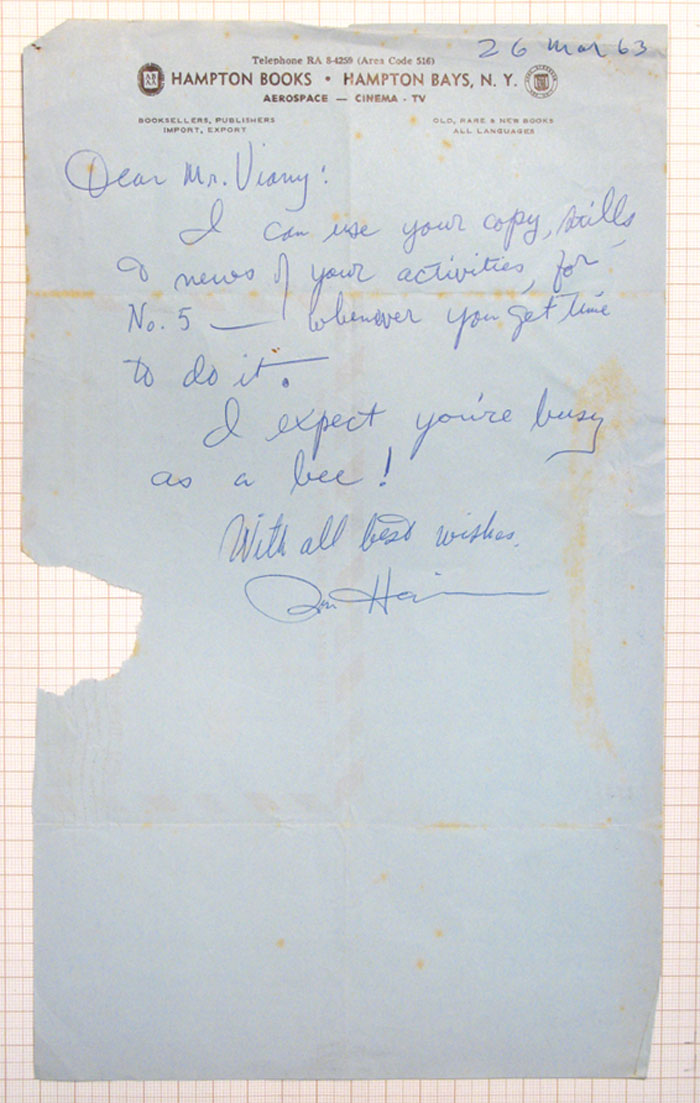 26 Mar 63
Telephone RA 8-4259 (Area Code 516)
HAMPTON BOOKS • HAMPTON BAYS, N. Y.
AEROSPACE — CINEMA - TV
BOOKSELLERS, PUBLISHERS
IMPORT, EXPORT
OLD, RARE & NEW BOOKS
ALL LANGUAGES
Dear Mr. Viany:
I can use your copy, stills
& news of your activities, for
No. 5 — whenever you get time
to do it.
I expect you're busy
as a bee!
With all best wishes.